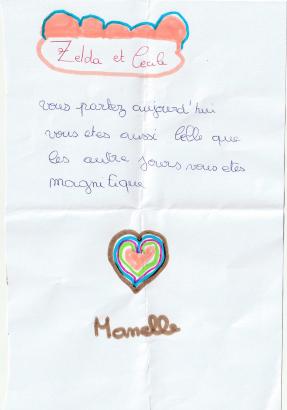 Zelda et Cécile
vous partez aujourd'hui
vous etes aussi belle que
les autre jours vous etes
magnifique
Manelle